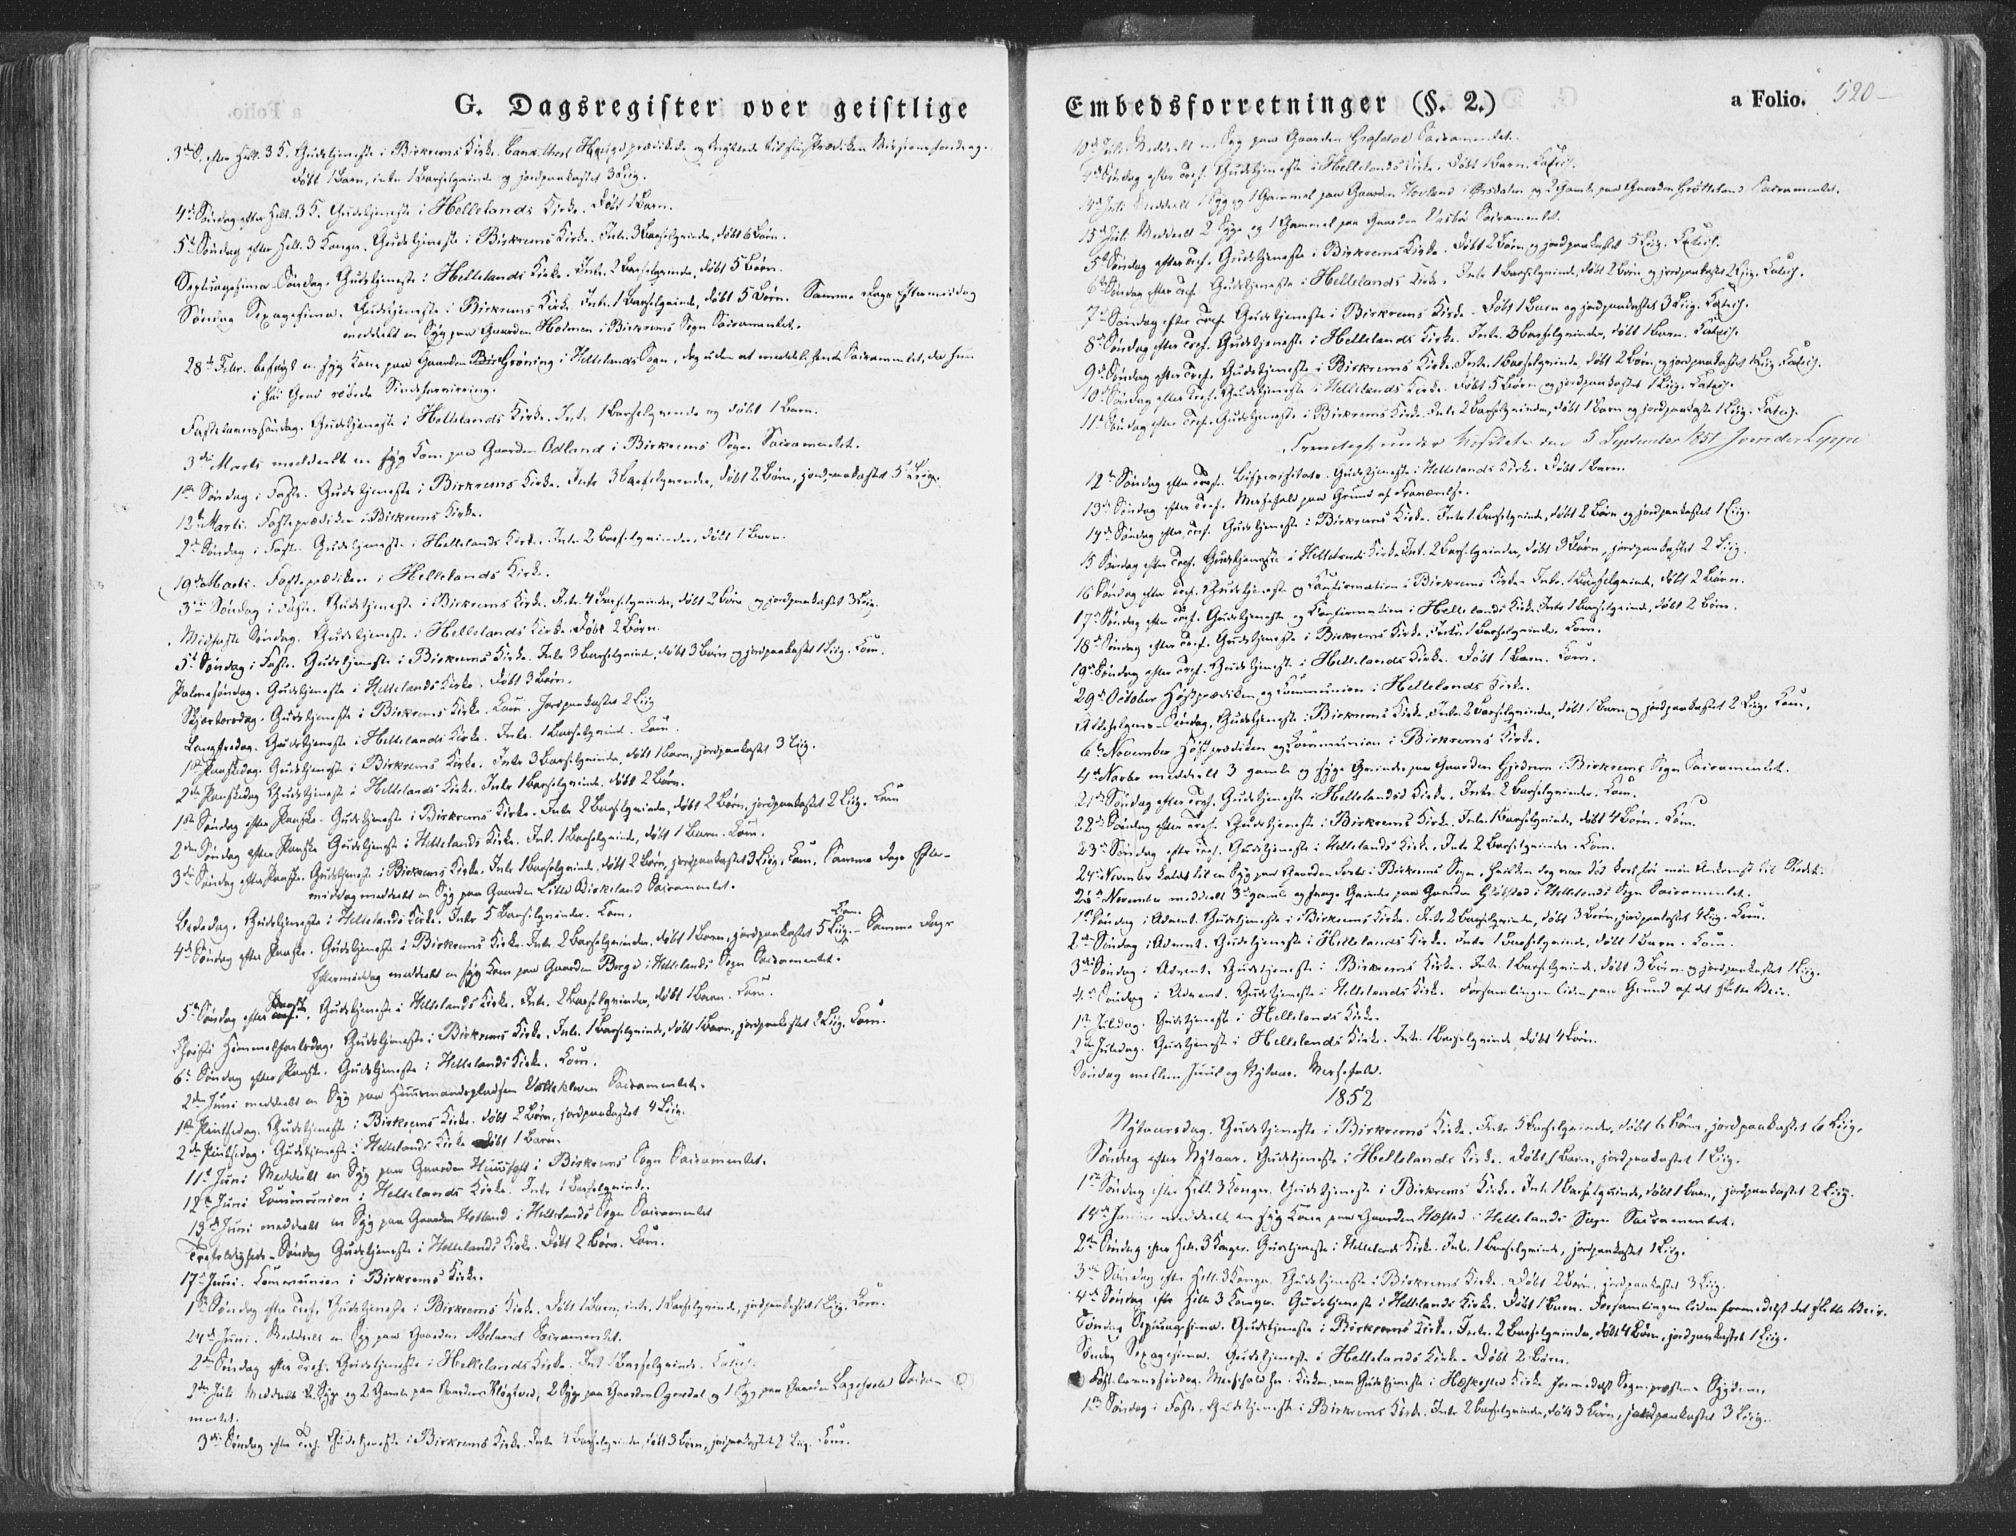 G. Dagsregister over geistlige
3die S. efter Hell. 3 K. Gudstjeneste i Birkrems Kirke. Cand. theol. prædikede og Missionsforedrag.
døbt 1 Barn, intr. 1 Barselqvinde og jordpaakastet 3 Liig.
4de Søndag efter Hell. 3 K. Gudstjeneste i Hellelands Kirke. Døbt 1 Barn.
5te Søndag efter Hell. 3 Konger. Gudstjeneste i Birkrems Kirke. Intr. 3 Barselqvinder, døbt 6 Børn.
Septuagesima Søndag. Gudstjeneste i Hellelands Kirke. Intr. 2 Barselqvinder, døbt 5 Børn.
Søndag Sexagesima. Gudstjeneste i Birkrems Kirke. Intr. 1 Barselqvinde, døbt 5 Børn. Samme Dags Eftermiddag
meddeelt en Syg paa Gaarden Holmen i Birkrems Sogn Sacramentet.
28de Febr. besøgt en syg Kone paa Gaarden Grøning i Hellelands Sogn, dog uden at meddele hende Sacramentet, da hun
i høi Grad røbede Sindsforvirring.
Fastelavnssøndag. Gudstjeneste i Hellelands Kirke. Intr. 1 Barselqvinde og døbt 1 Barn.
3die Marts meddeelt en syg Kone paa Gaarden Odland i Birkrems Sogn Sacramentet.
1ste Søndag i Faste. Gudstjeneste i Birkrems Kirke. Intr. 3 Barselqvinder, døbt 2 Børn, jordpaakastet 5 Liig.
12te Marts. Fasteprædiken i Birkrems Kirke.
2den Søndag i Faste. Gudstjeneste i Hellelands Kirke. Intr. 2 Barselqvinder, døbt 1 Barn.
19de Marts. Fasteprædiken i Hellelands Kirke.
3die Søndag i Faste. Gudstjeneste i Birkrems Kirke. Intr. 4 Barselqvinder, døbt 2 Børn og jordpaakastet 3 Liig.
Midfaste Søndag. Gudstjeneste i Hellelands Kirke. Døbt 2 Børn.
5te Søndag i Faste. Gudstjeneste i Birkrems Kirke. Intr. 3 Barselqvinder, døbt 3 Børn og jordpaakastet 1 Liig. Com.
Palmesøndag. Gudstjeneste i Hellelands Kirke. Døbt 3 Børn.
Skjærtorsdag. Gudstjeneste i Birkrems Kirke. Com. Jordpaakastet 2 Liig
Langfredag. Gudstjeneste i Hellelands Kirke. Intr. 1 Barselqvinde. Com.
1ste Paaskedag. Gudstjeneste i Birkrems Kirke. Intr. 3 Barselqvinder, døbt 1 Barn, jordpaakastet 3 Liig.
2den Paaskedag Gudstjeneste i Hellelands Kirke. Intr. 1 Barselqvinde, døbt 2 Børn.
1ste Søndag efter Paaske. Gudstjeneste i Birkrems Kirke. Intr. 2 Barselqvinder, døbt 2 Børn, jordpaakastet 2 Liig. Com
2den Søndag efter Paaske Gudstjeneste i Hellelands Kirke. Intr. 1 Barselqvinde, døbt 1 Barn. Com.
3die Søndag efter Paaske. Gudstjeneste i Birkrems Kirke. Intr. 1 Barselqvinde, døbt 2 Børn, jordpaakastet 3 Liig. Com. Samme Dags Efter-
middag meddeelt en Syg paa Gaarden Lille Birkeland Sacramentet.
Bededag. Gudstjeneste i Hellelands Kirke. Intr. 5 Barselqvinder. Com.
4de Søndag efter Paaske. Gudstjeneste i Birkrems Kirke. Intr. 2 Barselqvinder, døbt 1 Barn, jordpaakastet 5 Liig. Com. Samme Dags
Eftermiddag meddeelt en syg Kone paa Gaarden Berge i Hellelands Sogn Sacramentet.
5te Søndag efter Paaske. Gudstjeneste i Hellelands Kirke. Intr. 2 Barselqvinder, døbt 1 Barn. Com.
Christi Himmelfartsdag. Gudstjeneste i Birkrems Kirke. Intr. 1 Barselqvinde, døbt 1 Barn, jordpaakastet 2 Liig. Com.
6te Søndag efter Paaske. Gudstjeneste i Hellelands Kirke. Com.
2den Juni meddeelt en Syg paa Huusmandspladsen Sacramentet.
1ste Pintsedag. Gudstjeneste i Birkrems Kirke. Døbt 2 Børn, jordpaakastet 4 Liig.
2den Pintsedag. Gudstjeneste i Hellelands Kirke døbt 1 Barn.
11te Juni Meddeelt en Syg paa Gaarden i Birkrems Sogn Sacramentet.
12te Juni Communion i Hellelands Kirke. Intr. 1 Barselqvinde.
13de Juni meddeelt en Syg paa Gaarden Hetland i Hellelands Sogn Sacramentet
Trefoldigheds-Søndag Gudstjeneste i Hellelands Kirke. Døbt 2 Børn. Com.
17de Juni. Communion i Birkrems Kirke.
1ste Søndag efter Tref. Gudstjeneste i Birkrems Kirke. Døbt 1 Barn, intr. 1 Barselqvinde, jordpaakastet 1 Liig. Com.
24de Juni. Meddeelt en Syg paa Gaarden Sacramentet.
2den Søndag efter Tref. Gudstjeneste i Hellelands Kirke. Intr. 1 Barselqvinde.
Juli Meddeelt 2 Syge og 2 Gamle paa Gaarden 2 Syge paa Gaarden og 1 Syg paa Gaarden Sacra-
mentet.
3die Søndag efter Tref. Gudstjeneste i Birkrems Kirke. Intr. 4 Barselqvinder, døbt 3 Børn, jordpaakastet 2 Liig. Com.
Embedsforretninger (§. 2.)
a Folio. 520
10de Juli. Meddeelt en Syg paa Gaarden Sacramentet.
4de Søndag efter Tref. Gudstjeneste i Hellelands Kirke. Døbt 1 Barn. Catech.
14de Juli Meddeelt 1 Syg og 1 Gammel paa Gaarden i Ørsdalen og 2 Gamle paa Gaarden Sacramentet.
15de Juli. Meddeelt 2 Syge og 1 Gammel paa Gaarden Sacramentet.
5te Søndag efter Tref. Gudstjeneste i Birkrems Kirke. Døbt 2 Børn og jordpaakastet 5 Liig. Catech.
6te Søndag efter Tref. Gudstjeneste i Hellelands Kirke. Intr. 1 Barselqvinde, døbt 2 Børn og jordpaakastet 2 Liig. Catech.
7de Søndag efter Tref. Gudstjeneste i Birkrems Kirke. Døbt 1 Barn og jordpaakastet 3 Liig. Catech.
8de Søndag efter Tref. Gudstjeneste i Hellelands Kirke. Intr. 3 Barselqvinder, døbt 1 Barn. Catech.
9de Søndag efter Tref. Gudstjeneste i Birkrems Kirke. Intr. 1 Barselqvinde, døbt 2 Børn og jordpaakastet 1 Liig. Catech.
10de Søndag efter Tref. Gudstjeneste i Hellelands Kirke. Døbt 5 Børn og jordpaakastet 1 Liig. Catech.
11te Søndag efter Tref. Gudstjeneste i Birkrems Kirke. Intr. 2 Barselqvinder, døbt 1 Barn og jordpaakastet 1 Liig. Catech.
Fremlagt under Visitats den 5 September 1851 J von der Lippe
12te Søndag efter Tref. Bispevisitats. Gudstjeneste i Hellelands Kirke. Døbt 1 Barn.
13de Søndag efter Tref. Messefald paa Grund af Fraværelse.
14de Søndag efter Tref. Gudstjeneste i Birkrems Kirke. Intr. 1 Barselqvinde, døbt 2 Børn og jordpaakastet 1 Liig.
15 Søndag efter Tref. Gudstjeneste i Hellelands Kirke. Intr. 2 Barselqvinder, døbt 3 Børn, jordpaakastet 2 Liig.
16 Søndag efter Tref. Gudstjeneste og Confirmation i Birkrems Kirke. Intr. 1 Barselqvinde, døbt 2 Børn.
17de Søndag efter Tref. Gudstjeneste og Confirmation i Hellelands Kirke. Intr. 1 Barselqvinde, døbt 2 Børn.
18de Søndag efter Tref. Gudstjeneste i Birkrems Kirke. Intr. 1 Barselqvinde. Com.
19de Søndag efter Tref. Gudstjeneste i Hellelands Kirke. Døbt 1 Barn. Com.
29de October Høstprædiken og Communion i Hellelands Kirke.
Allehelgens-Søndag. Gudstjeneste i Birkrems Kirke, Intr. 2 Barselqvinder, døbt 1 Barn og jordpaakastet 2 Liig. Com.
6te November Høstprædiken og Communion i Birkrems Kirke.
4de Novbr meddeelt 3 gamle og syge Qvinder paa Gaarden Gjedrem i Birkrems Sogn Sacramentet.
21de Søndag efter Tref. Gudstjeneste i Hellelands Kirke. Intr. 2 Barselqvinder. Com.
22de Søndag efter Tref. Gudstjeneste i Birkrems Kirke. Intr. 1 Barselqvinde, døbt 4 Børn. Com.
23de Søndag efter Tref. Gudstjeneste i Hellelands Kirke. Intr. 2 Barselqvinder. Com.
24de November kaldet til en Syg paa Gaarden i Birkrems Sogn, hvilken dog var død kort før min Ankomst til Stedet.
November meddeelt 3 gamle og svage Qvinder paa Gaarden i Hellelands Sogn Sacramentet.
1ste Søndag i Advent. Gudstjeneste i Birkrems Kirke. Intr. 2 Barselqvinder, døbt 3 Børn, jordpaakastet 4 Liig. Com.
2den Søndag i Advent. Gudstjeneste i Hellelands Kirke Intr. 1 Barselqvinde, døbt 1 Barn. Com.
3die Søndag i Advent. Gudstjeneste i Birkrems Kirke. Intr. 1 Barselqvinde, døbt 3 Børn og jordpaakastet 1 Liig.
4de Søndag i Advent. Gudstjeneste i Hellelands Kirke. Forsamlingen liden paa Grund af det slette Veir.
1ste Juledag. Gudstjeneste i Hellelands Kirke.
2den Juledag. Gudstjeneste i Hellelands Kirke. Intr. 1 Barselqvinde døbt 4 Børn.
Søndag mellem Juul og Nytaar. Messefald.
1852
Nytaarsdag. Gudstjeneste i Birkrems Kirke. Intr. 5 Barselqvinder, døbt 6 Børn, jordpaakastet 6 Liig.
Søndag efter Nytaar. Gudstjeneste i Hellelands Kirke. Døbt 1 Barn, jordpaakastet 1 Liig.
1ste Søndag efter Hell. 3 Konger. Gudstjeneste i Birkrems Kirke. Intr. 1 Barselqvinde, døbt 1 Barn, jordpaakastet 2 Liig.
14de Januar meddeelt en syg Kone paa Gaarden i Hellelands Sogn Sacramentet.
2den Søndag efter Hell. 3 Konger. Gudstjeneste i Hellelands Kirke. Intr. 1 Barselqvinde, jordpaakastet 1 Liig.
3die Søndag efter Hell. 3 Konger. Gudstjeneste i Birkrems Kirke. Døbt 2 Børn, jordpaakastet 3 Liig.
4de Søndag efter Hell. 3 Konger. Gudstjeneste i Hellelands Kirke. Døbt 1 Barn. Forsamlingen liden formedelst det slette Veir.
Søndag Septuagesima. Gudstjeneste i Birkrems Kirke. Intr. 2 Barselqvinder, døbt 4 Børn, jordpaakastet 1 Liig.
Søndag Sexagesima. Gudstjeneste i Hellelands Kirke. Døbt 2 Børn.
Fastelavnssøndag. Messefald her i Kirken, men Gudstjeneste i Hæskestad Kirke formedelst Sognepræstens Sygdom.
1ste Søndag i Faste. Gudstjeneste i Birkrems Kirke. Intr. 2 Barselqvinder, døbt 3 Børn, jordpaakastet 3 Liig.